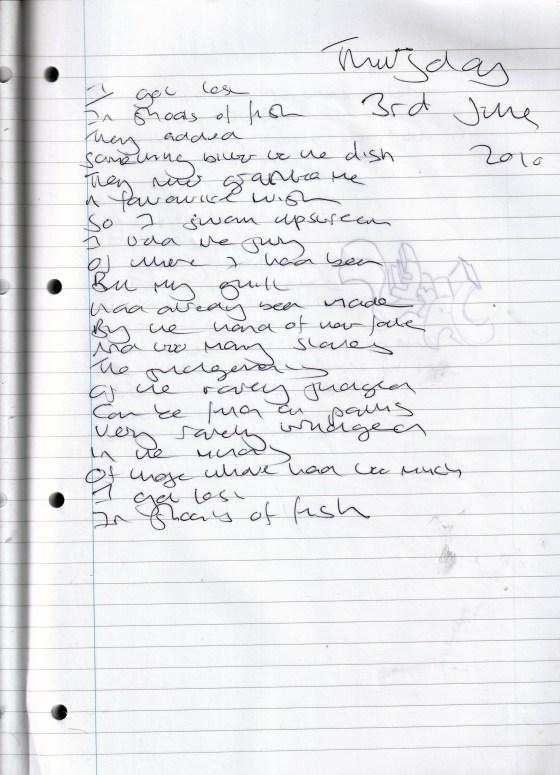 Thursday
3rd June
2010
I got lost
In shoals of fish
They added
something bitter to the dish
They now grant me
A favourite wish
So I swam upstream
I told the jury
Of where I had been
But my guilt
Had already been made
By the hand of
And too many slaves
The
Of the rarely judged
Can be
Very rarely
In the minds
Of those who've had too much
I got lost
In shoals of fish